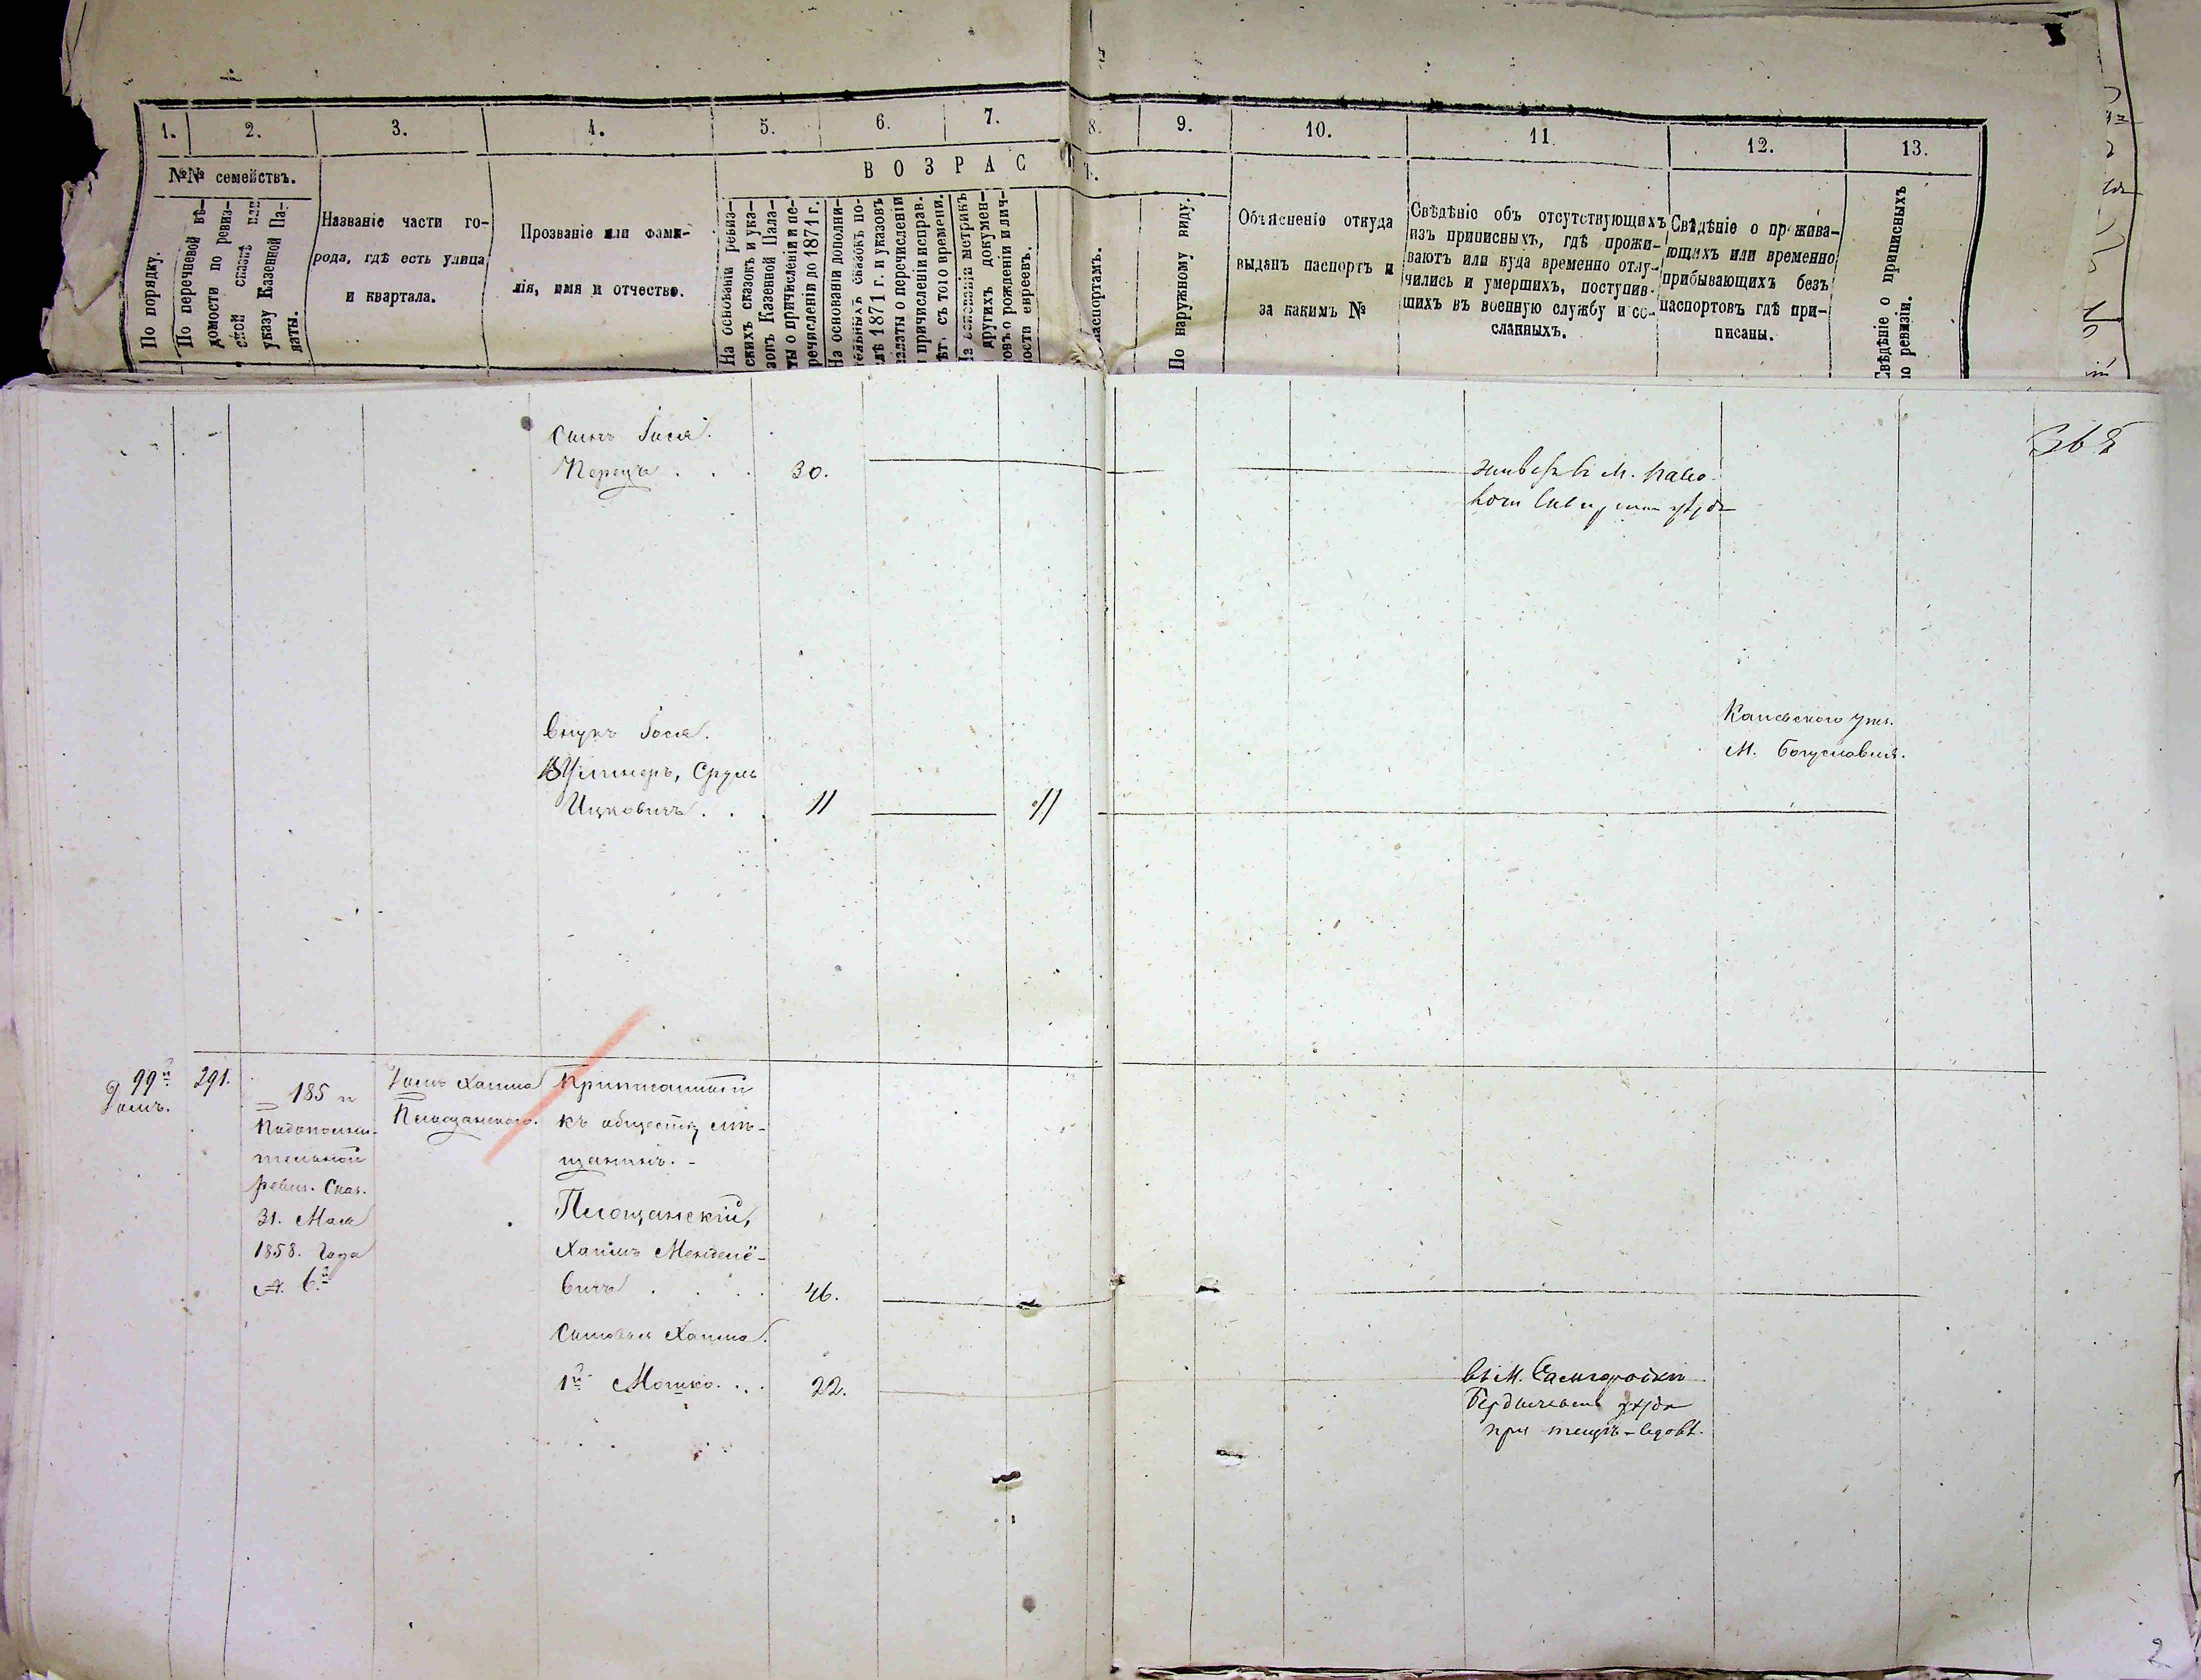 1.
2.
3.
4.
5.
6.
7.
8.
9.
10.
11.
12.
13.
№№ семействъ.
ВОЗРАС
По порядку.
По перечневой вѣ-
домости по ревиз-
ской сказкѣ или
указу Казенной Па-
латы.
Названіе части го-
рода, гдѣ есть улица
и квартала.
Прозваніе или фами-
лія, имя и отчество.
На основаніи ревиз-
скихъ сказокъ и ука-
зовъ Казенной Пала-
ты о причисленіи и пе-
речисленіи до 1871 г.
На основаніи дополни-
тельныхъ сказокъ по-
слѣ 1871 г. и указовъ
палаты о перечисленіи
и причисленіи исправ.
лѣт. съ того времени.
На основаніи метрикъ
и другихъ докумен-
товъ о рожденіи и лич-
ности евреевъ.
паспортамъ.
По наружному виду.
Объясненіе откуда
выданъ паспортъ и
за какимъ №
Свѣдѣніе объ отсутствующихъ
изъ приписныхъ, гдѣ прожи-
ваютъ или куда временно отлу-
чились и умершихъ, поступив-
шихъ въ военную службу и со-
сланныхъ.
Свѣдѣніе о прожива-
ющихъ или временно
прибывающихъ безъ
паспортовъ гдѣ при-
писаны.
Свѣдѣніе о приписныхъ
по ревизіи.
Сынъ Іося.
Перецъ . . . 30.
въ М.
внукъ Іося.
Срулъ
Ицковичъ . . . 11 11
Каневскаго уѣз.
М. Богуславля.
99й
Домъ.
291.
185 и
По дополни-
тельной
ревиз. Сказ.
31. Мая
1858. года
6й
Домъ Хаима
Площанского.
Приписанный
къ обществу мѣ-
щанинъ. -
Площанскій,
Хаимъ Менделё-
вичъ . . . 46.
Сыновья Хаима.
1й Мошко . . . 22.
въ М. Самгородки
Бердичевск уѣзда
при тещѣ-вдовѣ.
2